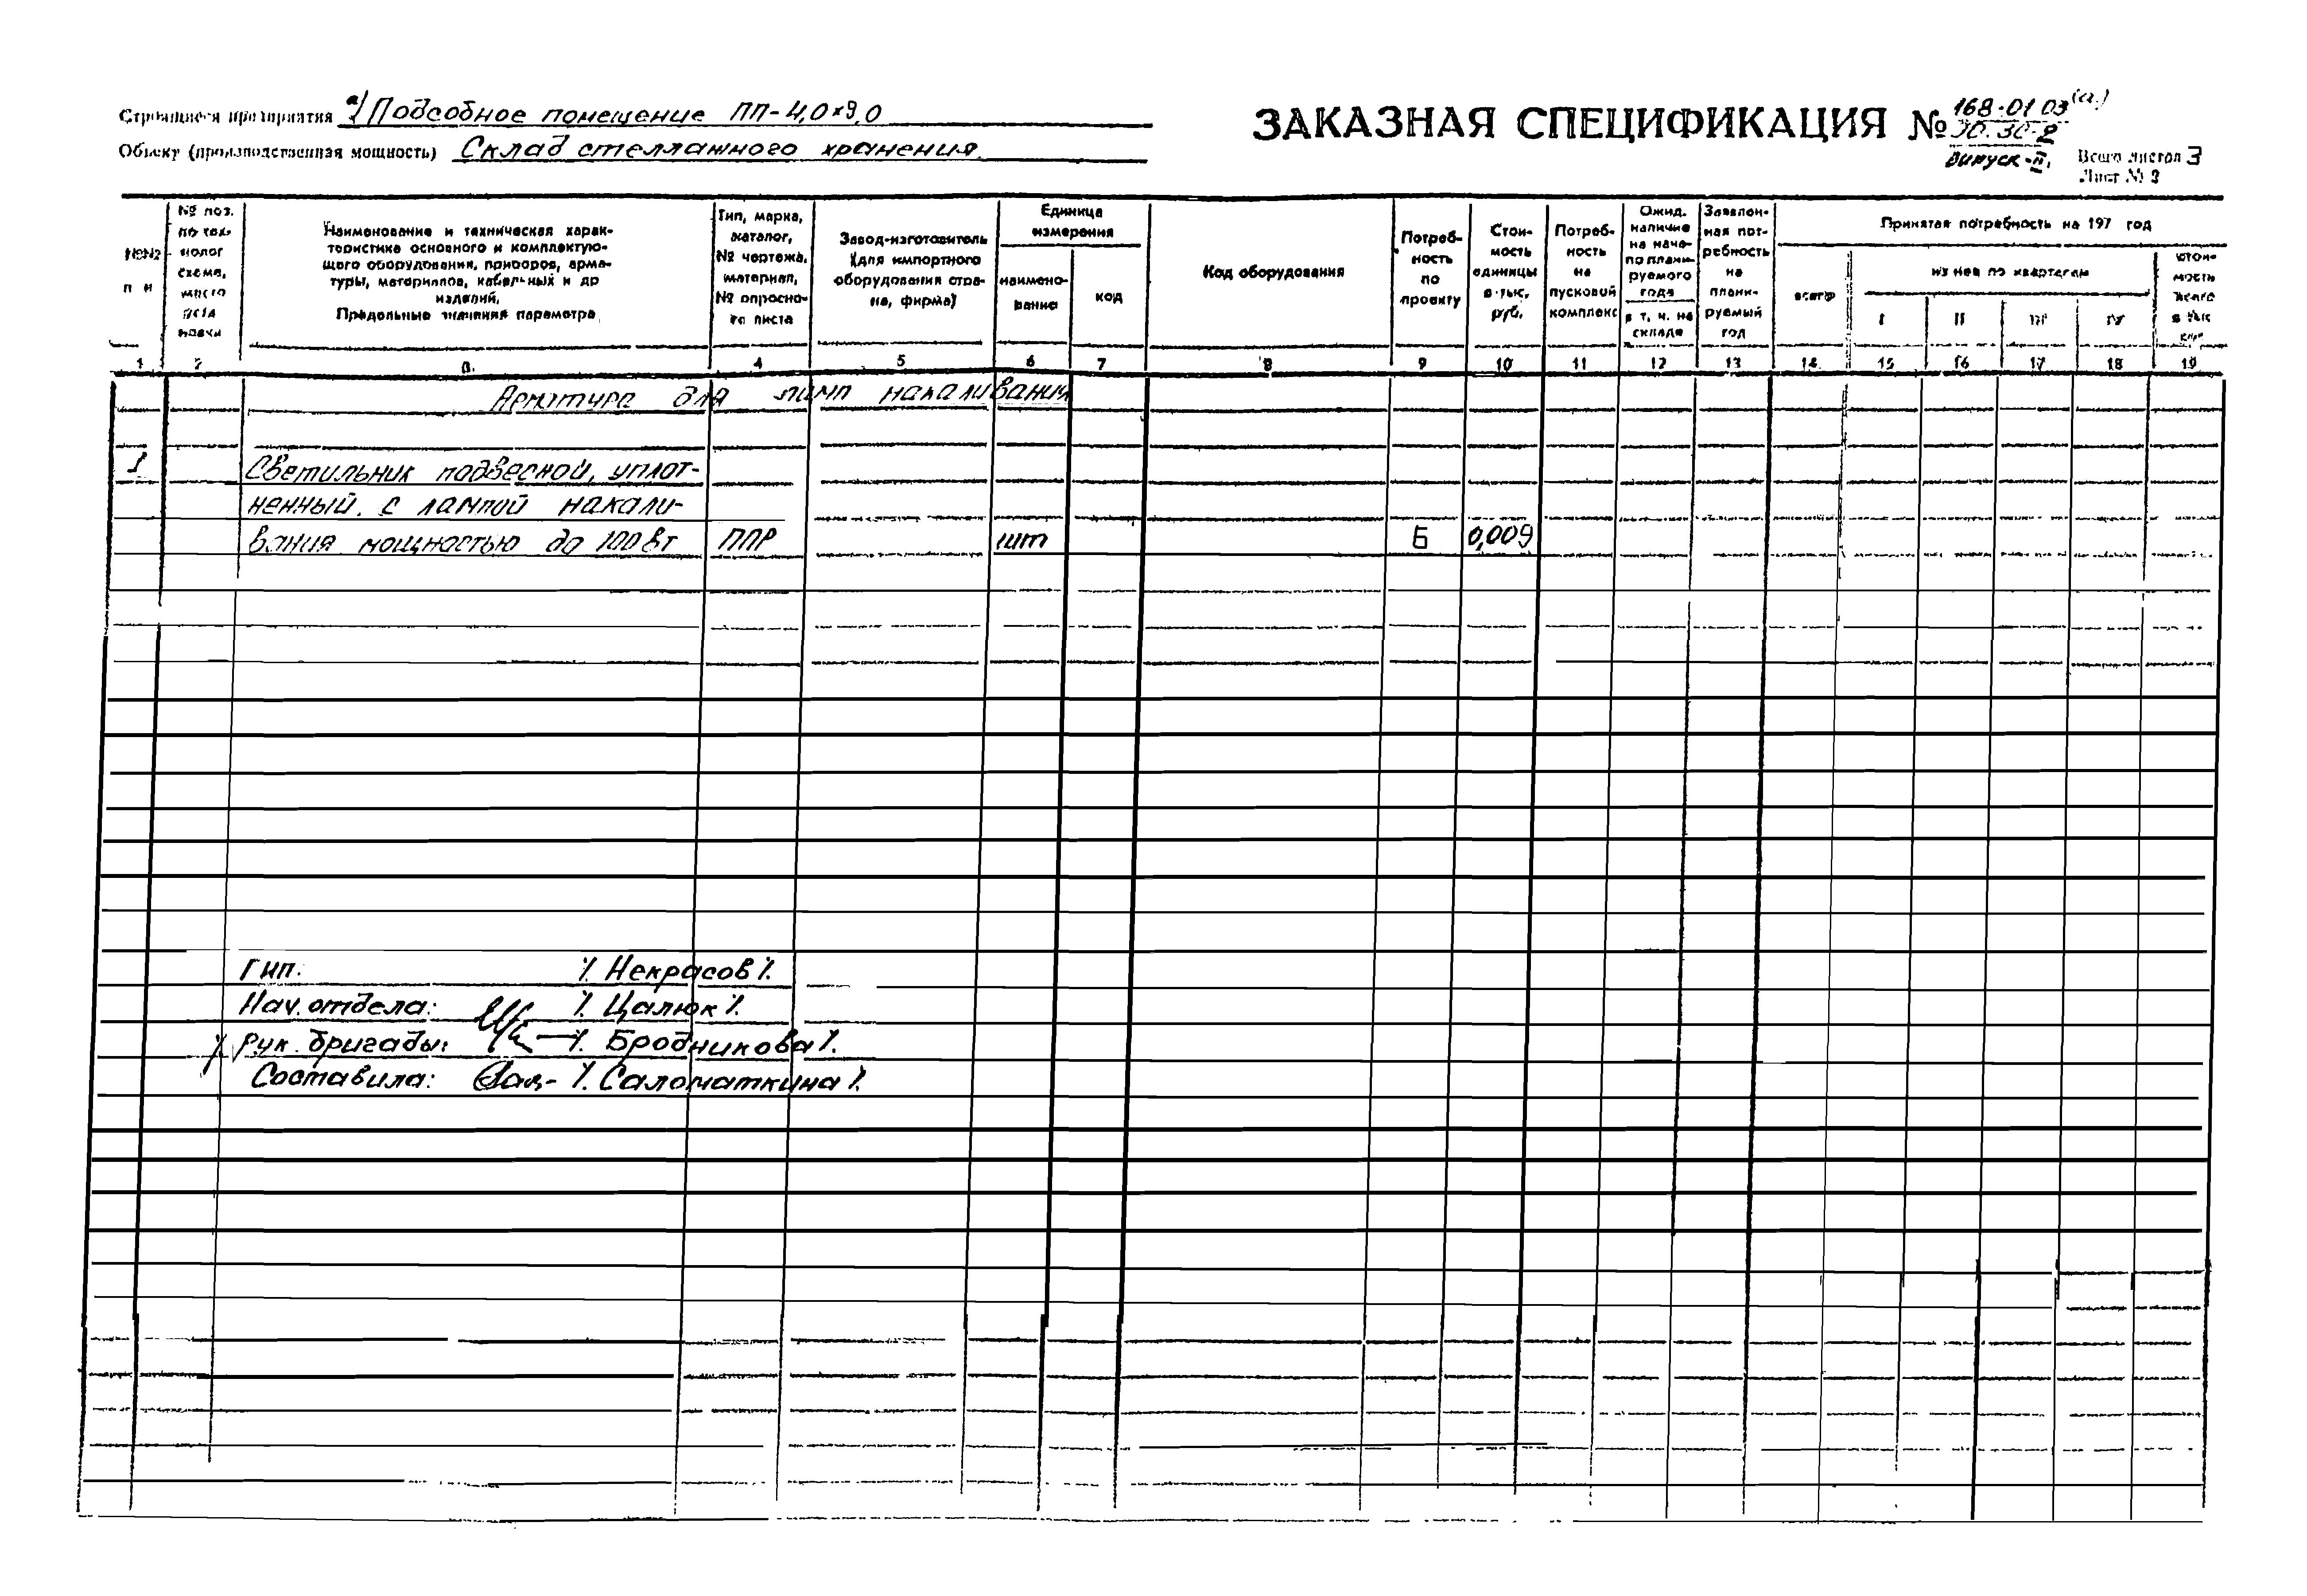 Строящиеся предприятия а) Подсобное помещение ПП-4,0×9,0
Объекту (производственная мощность) Склад стеллажного хранения.
ЗАКАЗНАЯ СПЕЦИФИКАЦИЯ № 168-01.03 (а.)
Выпуск-II.
Всего листов 3
Лист №
№№ п п
№ поз. по тех-
нолог
схеме,
место
уста
новки
Наименование и техническая харак-
теристика основного и комплектую-
щего оборудования, приборов, арма-
туры, материалов, кабельных и др
изделий.
Предельные значения параметра
Тип, марка,
каталог,
№ чертежа,
материал,
№ опросно-
го листа
Завод-изготовитель
(для импортного
оборудования стра-
на, фирма)
Единица
измерения
наимено-
вание
код
Код оборудования
Потреб-
ность
по
проекту
Стои-
мость
единицы
в тыс.
руб.
Потреб-
ность
на
пусковой
комплекс
Ожид.
наличие
на нача-
ло плани-
руемого
года
в т. ч. на
складе
Заявлен-
ная пот-
ребность
на
плани-
руемый
год
Принятая потребность на 197 год
всего
из нее по кварталам
I II III IV
стои-
мость
всего
в тыс
руб
1 2 3. 4 5 6 7 8 9 10 11 12 13 14 15 16 17 18 19
Арматура для ламп накаливания
1 Светильник подвесной, уплот-
ненный. с лампой накали-
вания мощностью до 100 вт ППР шт Б 0,009
Гип: /. Некрасов /.
Нач. отдела: /. Цалюк /.
Рук. бригады: /. Бродникова /.
Составила: /. Саломаткина /.